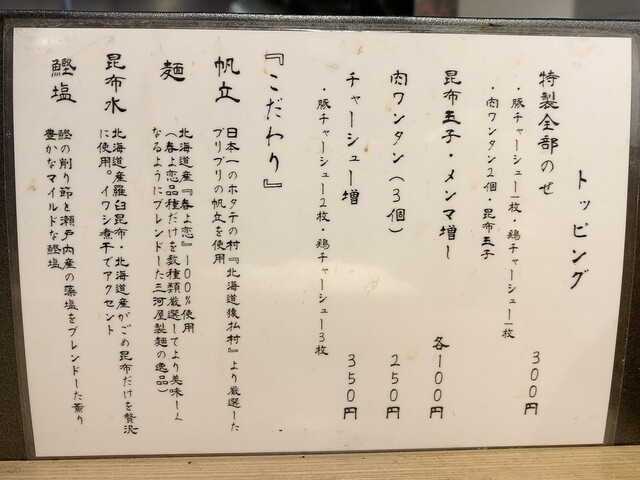 トッピング
特製全部のせ 300円
・豚チャーシュー一枚・鶏チャーシュー一枚
・肉ワンタン2個・昆布玉子
昆布玉子・メンマ増し 各100円
肉ワンタン(3個) 250円
チャーシュー増 350円
・豚チャーシュー2枚・鶏チャーシュー3枚
『こだわり』
帆立 日本一のホタテの村『北海道猿払村』より厳選した
プリプリの帆立を使用
麺 北海道産『春よ恋』100%使用
(春よ恋品種だけを数種類厳選してより美味しく
なるようにブレンドした三河屋製麺の逸品)
昆布水 北海道産羅臼昆布・北海道産がごめ昆布だけを贅沢
に使用。イワシ煮干でアクセント
鰹塩 鰹の削り節と瀬戸内産の藻塩をブレンドした薫り
豊かなマイルドな鰹塩